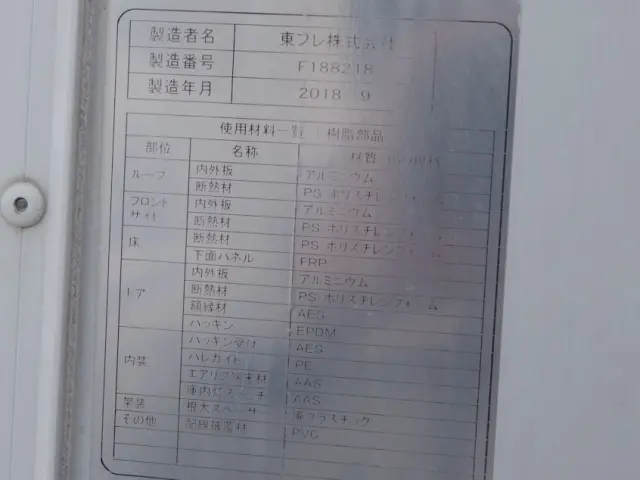 製造者名 東プレ株式会社
製造番号 F188218
製造年月 2018 9
使用材料一覧 樹脂部品
部位 名称 材質
ルーフ 内外板 アルミニウム
断熱材 PS ポリスチレンフォーム
フロント サイド 内外板 アルミニウム
断熱材 PS ポリスチレンフォーム
床 断熱材 PS ポリスチレンフォーム
下面パネル FRP
ドア 内外板 アルミニウム
断熱材 PS ポリスチレンフォーム
額縁材 AES
パッキン EPDM
内装 パッキン受け AES
ハレガイド PE
エアリブ AAS
庫内灯 AAS
架装 根太スペーサ プラスチック
その他 配線 PVC